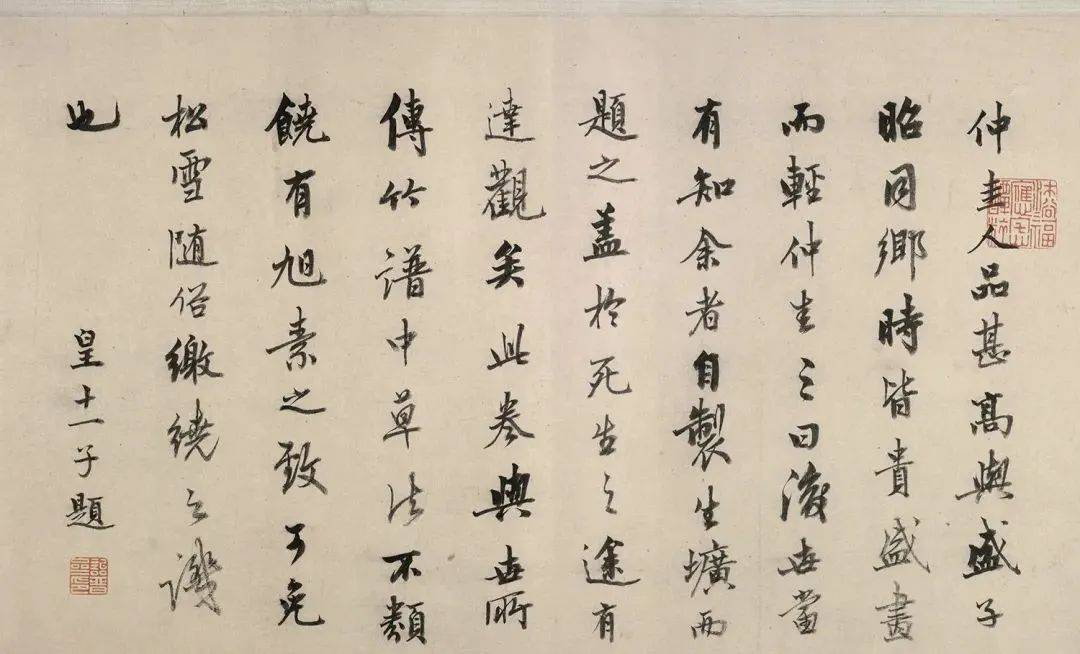 仲圭人品甚高與盛子
昭同鄉時皆貴盛畫
而輕仲圭圭曰後世當
有知余者自製生壙而
題之蓋於死生之途有
達觀矣此卷與世所
傳竹譜中草法不類
饒有旭素之致可免
松雪随俗繳繞之譏
也
皇十一子題